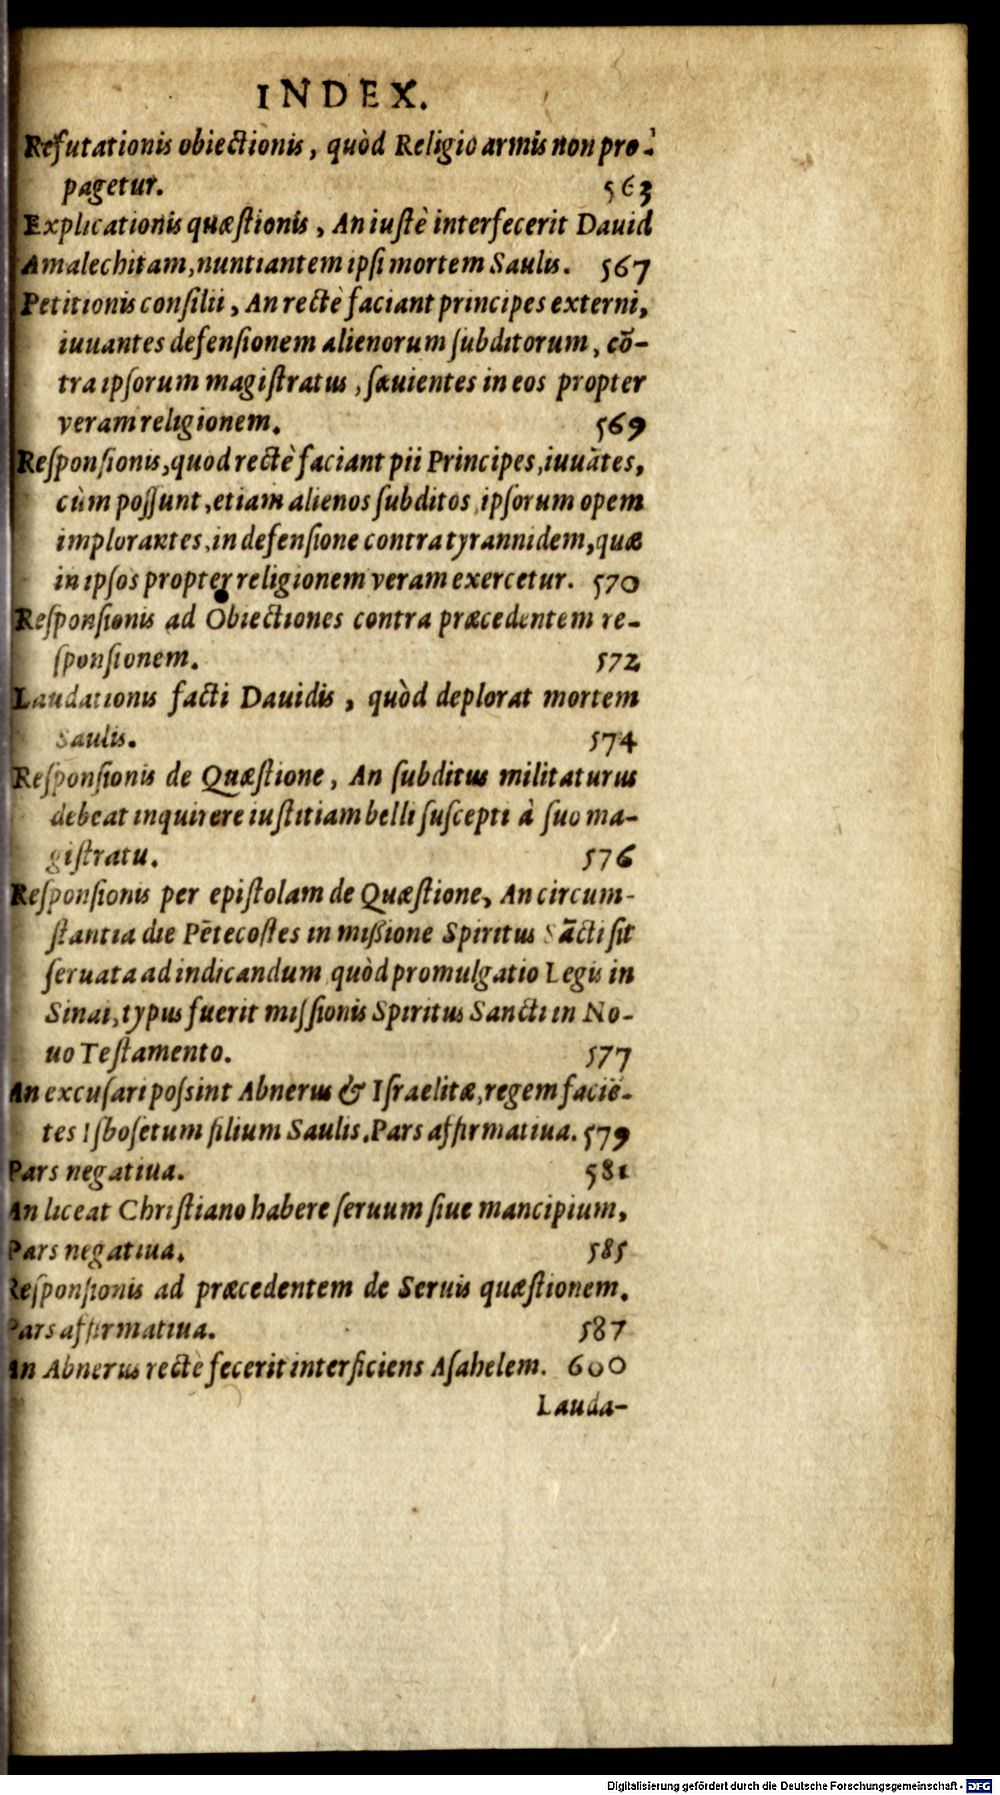 INDEX.
Refutationis obiectionis, quòd Religio armis non pro-
pagetur. 563
Explicationis quæſtionis, An iuſtè interfecerit Dauid
Amalechitam, nuntiantem ipſi mortem Saulis. 567
Petitionis conſilii, An rectè faciant principes externi,
iuuantes defenſionem alienorum ſubditorum, cō-
tra ipſorum magiſtratus, ſæuientes in eos propter
veram religionem. 569
Reſponſionis, quod rectè faciant pii Principes, iuuātes,
cùm poſſunt, etiam alienos ſubditos, ipſorum opem
implorantes, in defenſione contra tyrannidem, quæ
in ipſos propter religionem veram exercetur. 570
Reſponſionis ad Obiectiones contra præcedentem re-
ſponſionem. 572
Laudationis facti Dauidis, quòd deplorat mortem
Saulis. 574
Reſponſionis de Quæſtione, An ſubditus militaturus
debeat inquirere iuſtitiam belli ſuſcepti à ſuo ma-
giſtratu. 576
Reſponſionis per epiſtolam de Quæſtione, An circum-
ſtantia die Pētecoſtes in miſſione Spiritus Sācti ſit
ſeruata ad indicandum quòd promulgatio Legis in
Sinai, typus fuerit miſſionis Spiritus Sancti in No-
uo Teſtamento. 577
An excuſari poſsint Abnerus & Iſraelitæ, regem faciē-
tes Iſboſetum filium Saulis. Pars affirmatiua. 579
Pars negatiua. 581
An liceat Chriſtiano habere ſeruum ſiue mancipium,
Pars negatiua. 585
Reſponſionis ad præcedentem de Seruis quæſtionem.
Pars affirmatiua. 587
An Abnerus rectè fecerit interficiens Aſahelem. 600
Lauda-
Digitalisierung gefördert durch die Deutsche Forschungsgemeinschaft - DFG